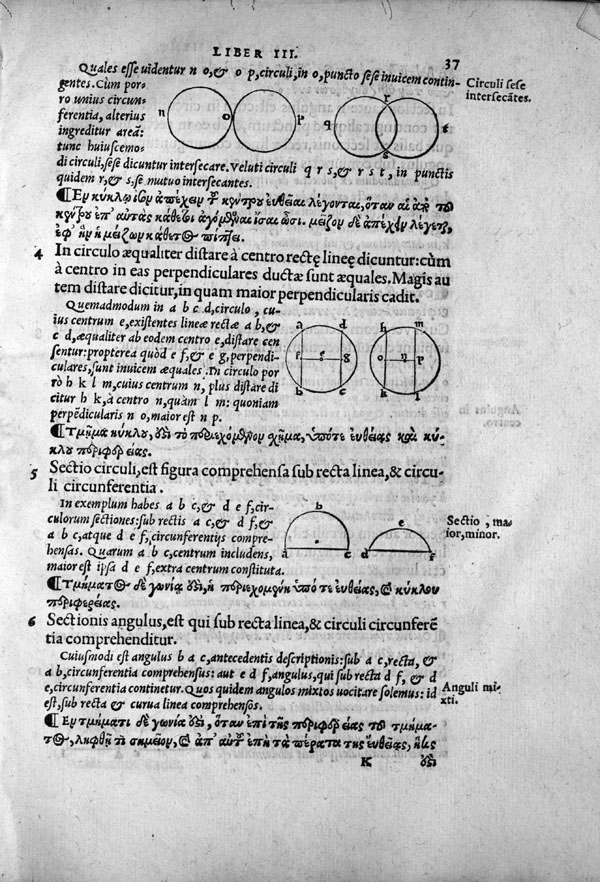 LIBER III. 37
Quales esse uidentur n o, & o p, circuli, in o, puncto sese inuicem contin-
gentes. Cùm por-
ro unius circun-
ferentia, alterius
ingreditur areā:
tunc huiuscemo-
di circuli, sese dicuntur intersecare. Veluti circuli q r s, & r s t, in punctis
quidem r, & s, se mutuo intersecantes.
Circuli sese
intersecātes.
n o p q r s t
¶ Ἐν κύκλῳ ἴσον ἀπέχειν τοῦ κέντρου εὐθεῖαι λέγονται, ὅταν αἱ ἀπὸ τοῦ
κέντρου ἐπ' αὐτὰς κάθετοι ἀγόμεναι ἴσαι ὦσι. μεῖζον δὲ ἀπέχειν λέγεται,
ἐφ' ἣν ἡ μείζων κάθετος πίπτει.
4 In circulo æqualiter distare à centro rectę lineę dicuntur: cùm
à centro in eas perpendiculares ductæ sunt æquales. Magis au
tem distare dicitur, in quam maior perpendicularis cadit.
Quemadmodum in a b c d, circulo, cu-
ius centrum e, existentes lineæ rectæ a b, &
c d, æqualiter ab eodem centro e, distare cen
sentur: propterea quòd e f, & e g, perpendi-
culares, sunt inuicem æquales. In circulo por
rò h k l m, cuius centrum n, plus distare di
citur h k, à centro n, quàm l m: quoniam
perpēdicularis n o, maior est n p.
a d f e g b c
h m o n p k l
¶ Τμῆμα κύκλου, ἐστὶ τὸ περιεχόμενον σχῆμα, ὑπό τε εὐθείας καὶ κύ-
κλου περιφερείας.
5 Sectio circuli, est figura comprehensa sub recta linea, & circu-
li circunferentia.
In exemplum habes a b c, & d e f, cir-
culorum sectiones: sub rectis a c, & d f, &
a b c, atque d e f, circunferentijs compre-
hensas. Quarum a b c, centrum includens,
maior est ipsa d e f, extra centrum constituta.
b a c e d f
Sectio, ma
ior, minor.
¶ Τμήματος δὲ γωνία ἐστὶν, ἡ περιεχομένη ὑπό τε εὐθείας, καὶ κύκλου
περιφερείας.
6 Sectionis angulus, est qui sub recta linea, & circuli circunferē
tia comprehenditur.
Cuiusmodi est angulus b a c, antecedentis descriptionis: sub a c, recta, &
a b, circunferentia comprehensus: aut e d f, angulus, qui sub recta d f, & d
e, circunferentia continetur. Quos quidem angulos mixtos uocitare solemus: id
est, sub recta & curua linea comprehensos.
Anguli mi-
xti.
¶ Ἐν τμήματι δὲ γωνία ἐστὶν, ὅταν ἐπὶ τῆς περιφερείας τοῦ τμήμα-
τος, ληφθῇ τι σημεῖον, καὶ ἀπ' αὐτοῦ ἐπὶ τὰ πέρατα τῆς εὐθείας, ἥτις
K ἐστὶ